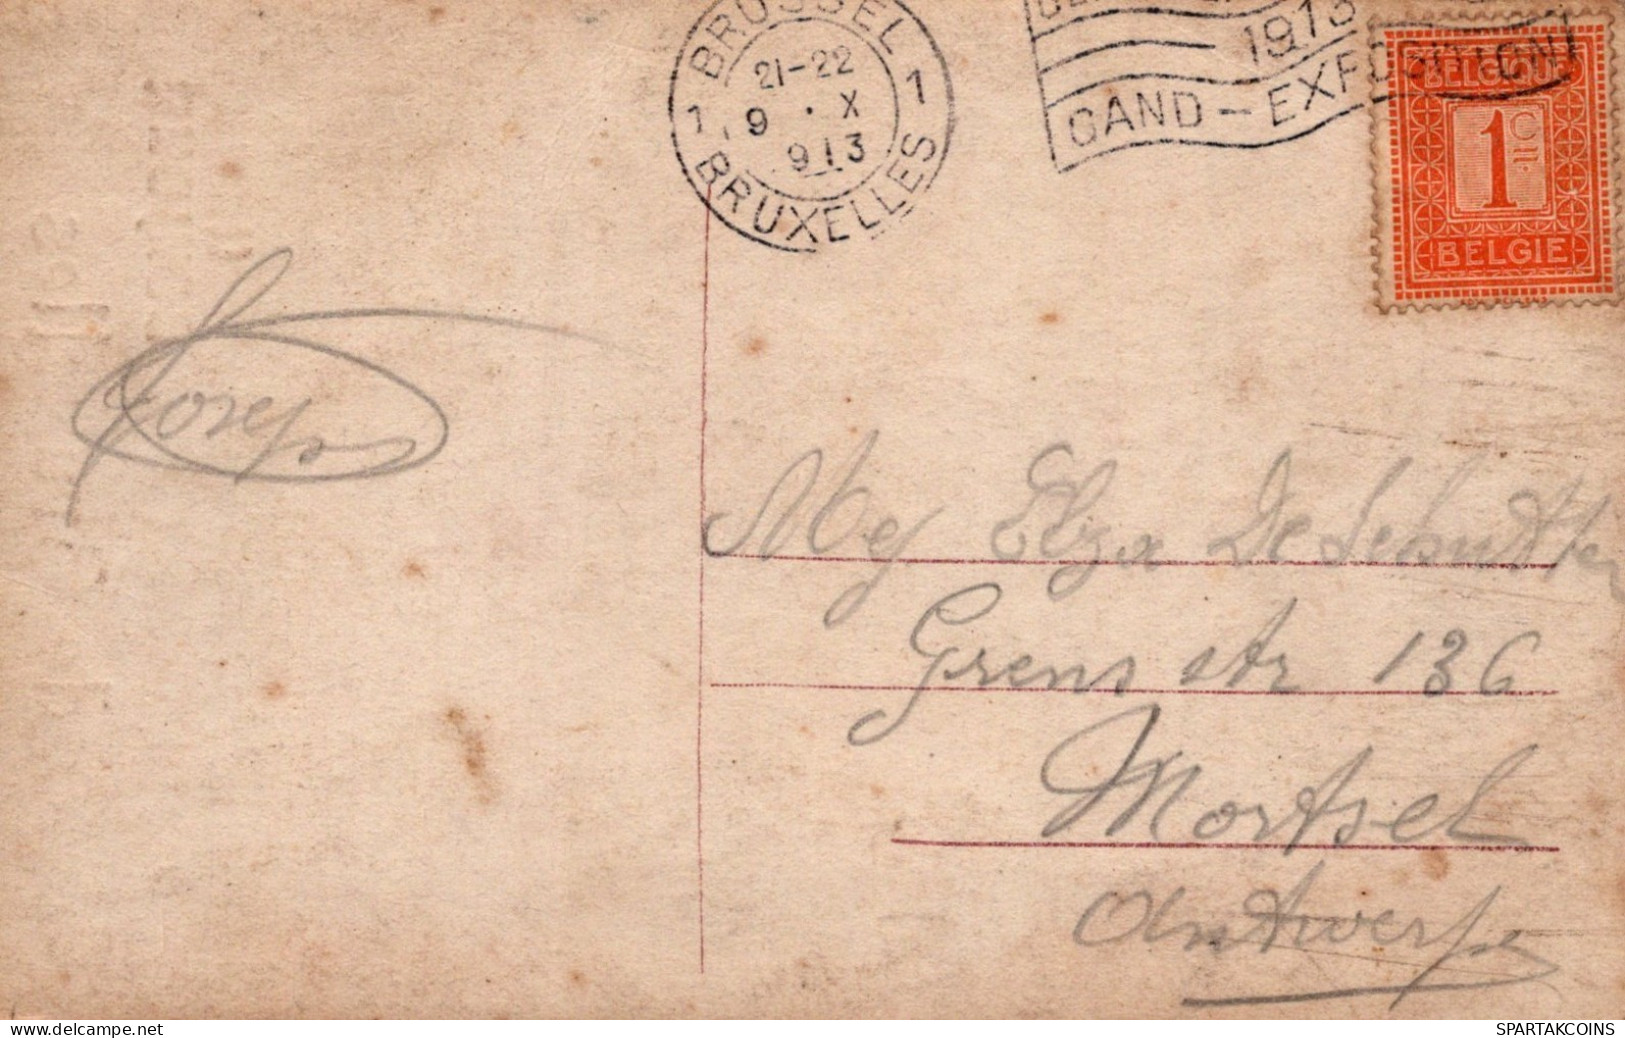 BRUSSEL
21-22
1 9 · X 1
913
BRUXELLES
1913
GAND-EXPOSITION
BELGIQUE
1 C
BELGIË
Josep
Mej Elza De Schutter
Grensstr 136
Mortsel
Antwerpen
www.delcampe.net
SPARTAKCOINS